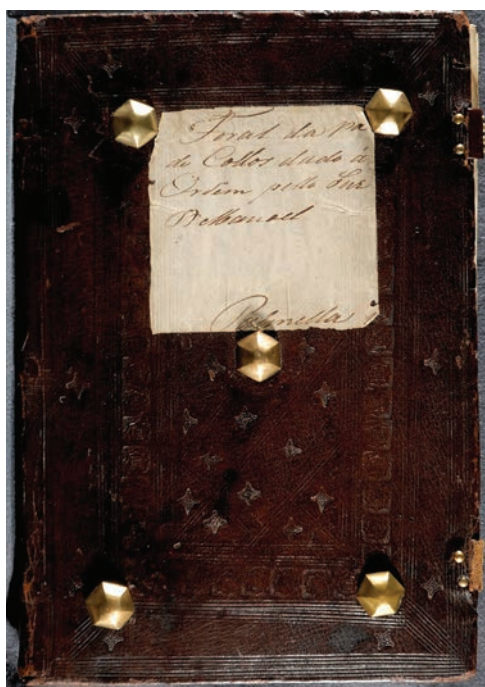 Foral da Va
de Collos dado á
Ordem pello Snr
D Manoel
Palmella